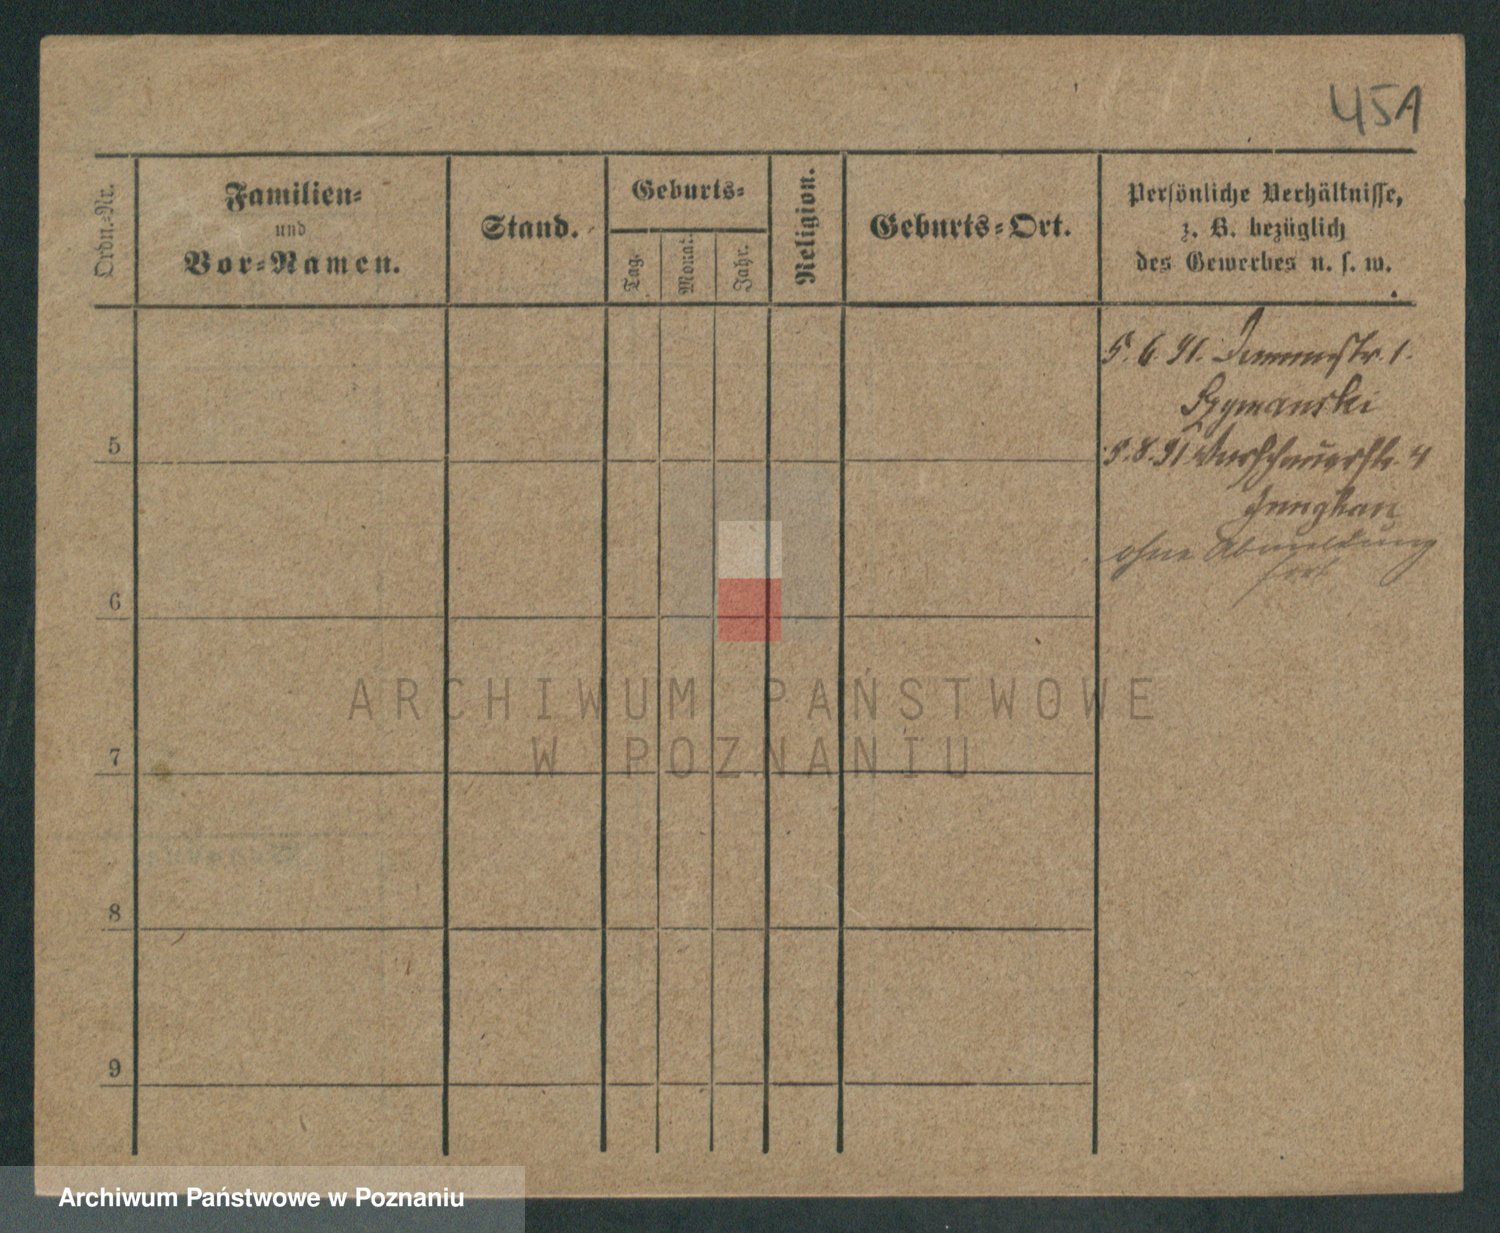 45A
Ordn.-Nr.
Familien-
und
Vor-Namen.
Stand.
Geburts-
Tag.
Monat.
Jahr.
Religion.
Geburts-Ort.
Persönliche Verhältnisse,
z. B. bezüglich
des Gewerbes u. s. w.
5.6.91. 1.
Szymanski
5.8.91 4
5
ohne Abmeldung
fort
6
7
8
9
ARCHIWUM PAŃSTWOWE
W POZNANIU
Archiwum Państwowe w Poznaniu